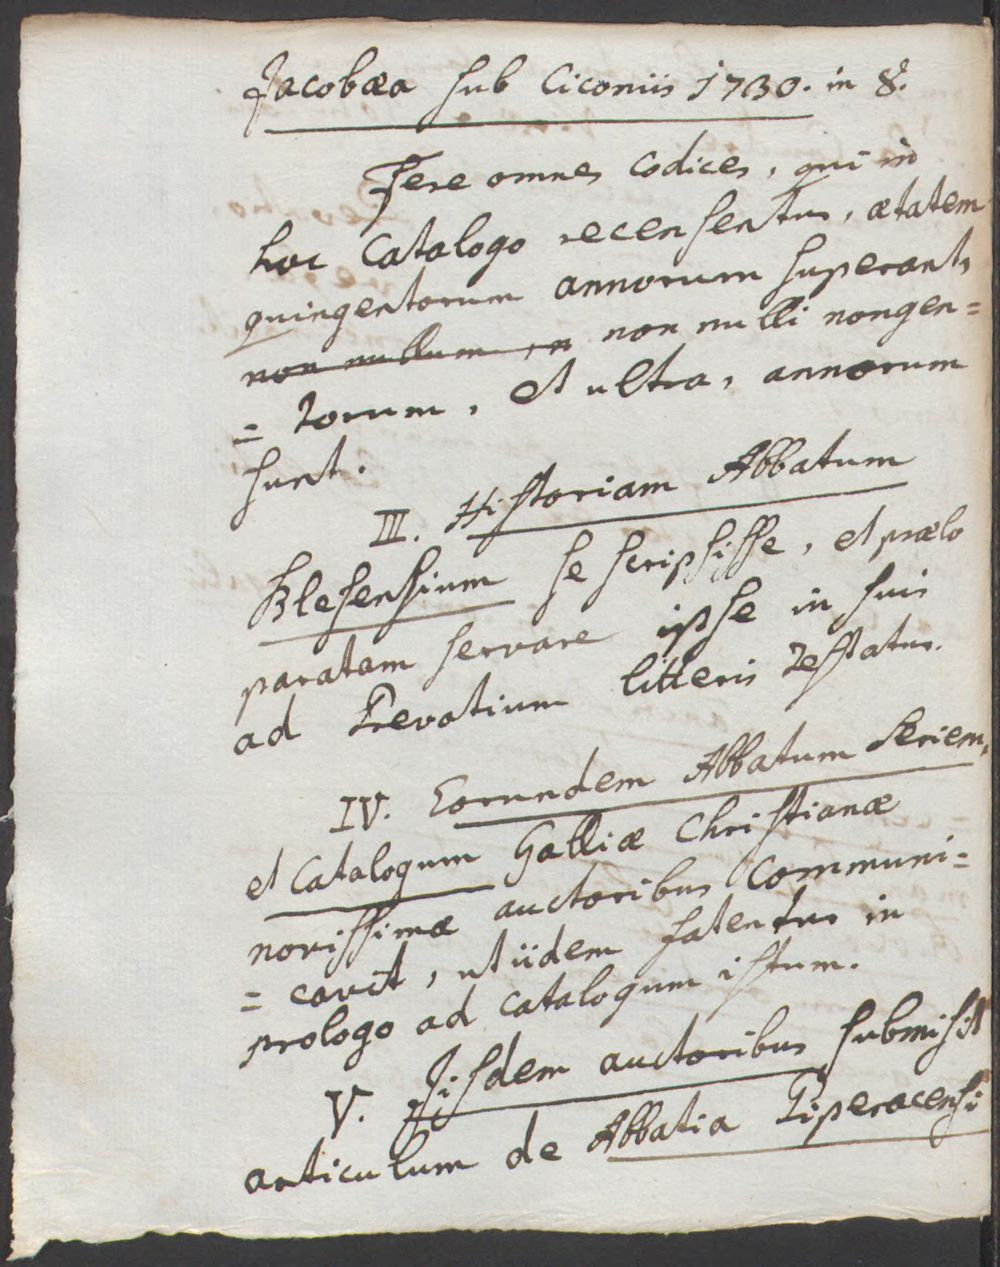 Jacobæa sub Ciconiis 1730. in 8.º
Fere omnes codices, qui in
hoc Catalogo recensentur, ætatem
quingentorum annorum superant,
non nullum in non nulli nongen=
= torum, et ultra, annorum
sunt.
III. Historiam Abbatum
Blesensium se scripsisse, et prælo
paratam servare ipse in suis
ad Prevotium litteris testatur.
IV. Eorundem Abbatum Seriem,
et Catalogum Galliæ Christianæ
novissimæ auctoribus Communi=
= cavit, ut iidem fatentur in
prologo ad catalogum istum.
V. Iisdem auctoribus submisit
articulum de Abbatia Piperacensi